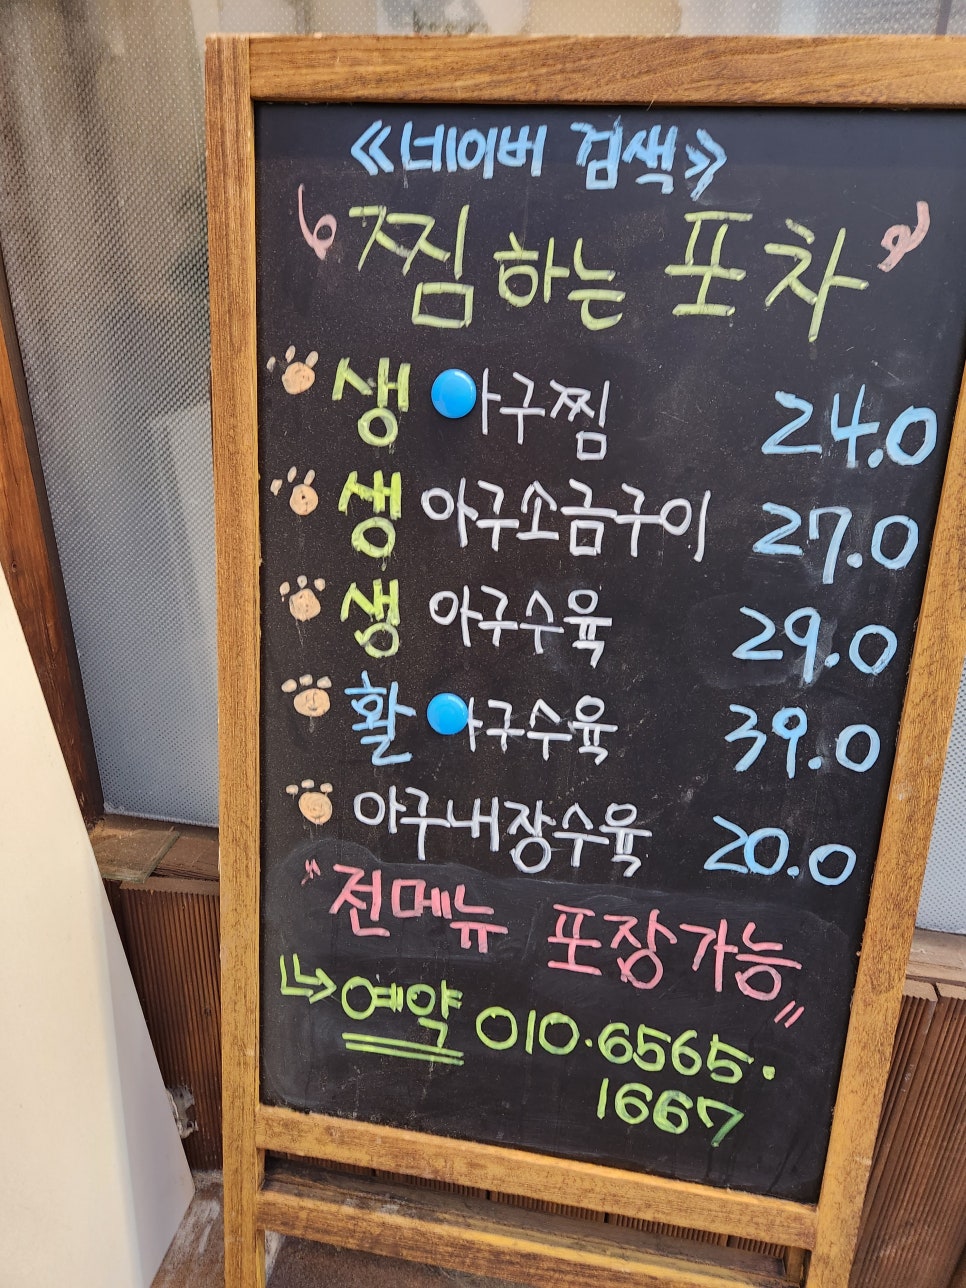 ≪네이버 검색≫
찜하는 포차
생 아구찜 24.0
생 아구소금구이 27.0
생 아구수육 29.0
활 아구수육 39.0
아구내장수육 20.0
"전메뉴 포장가능"
예약 010·6565·
1667